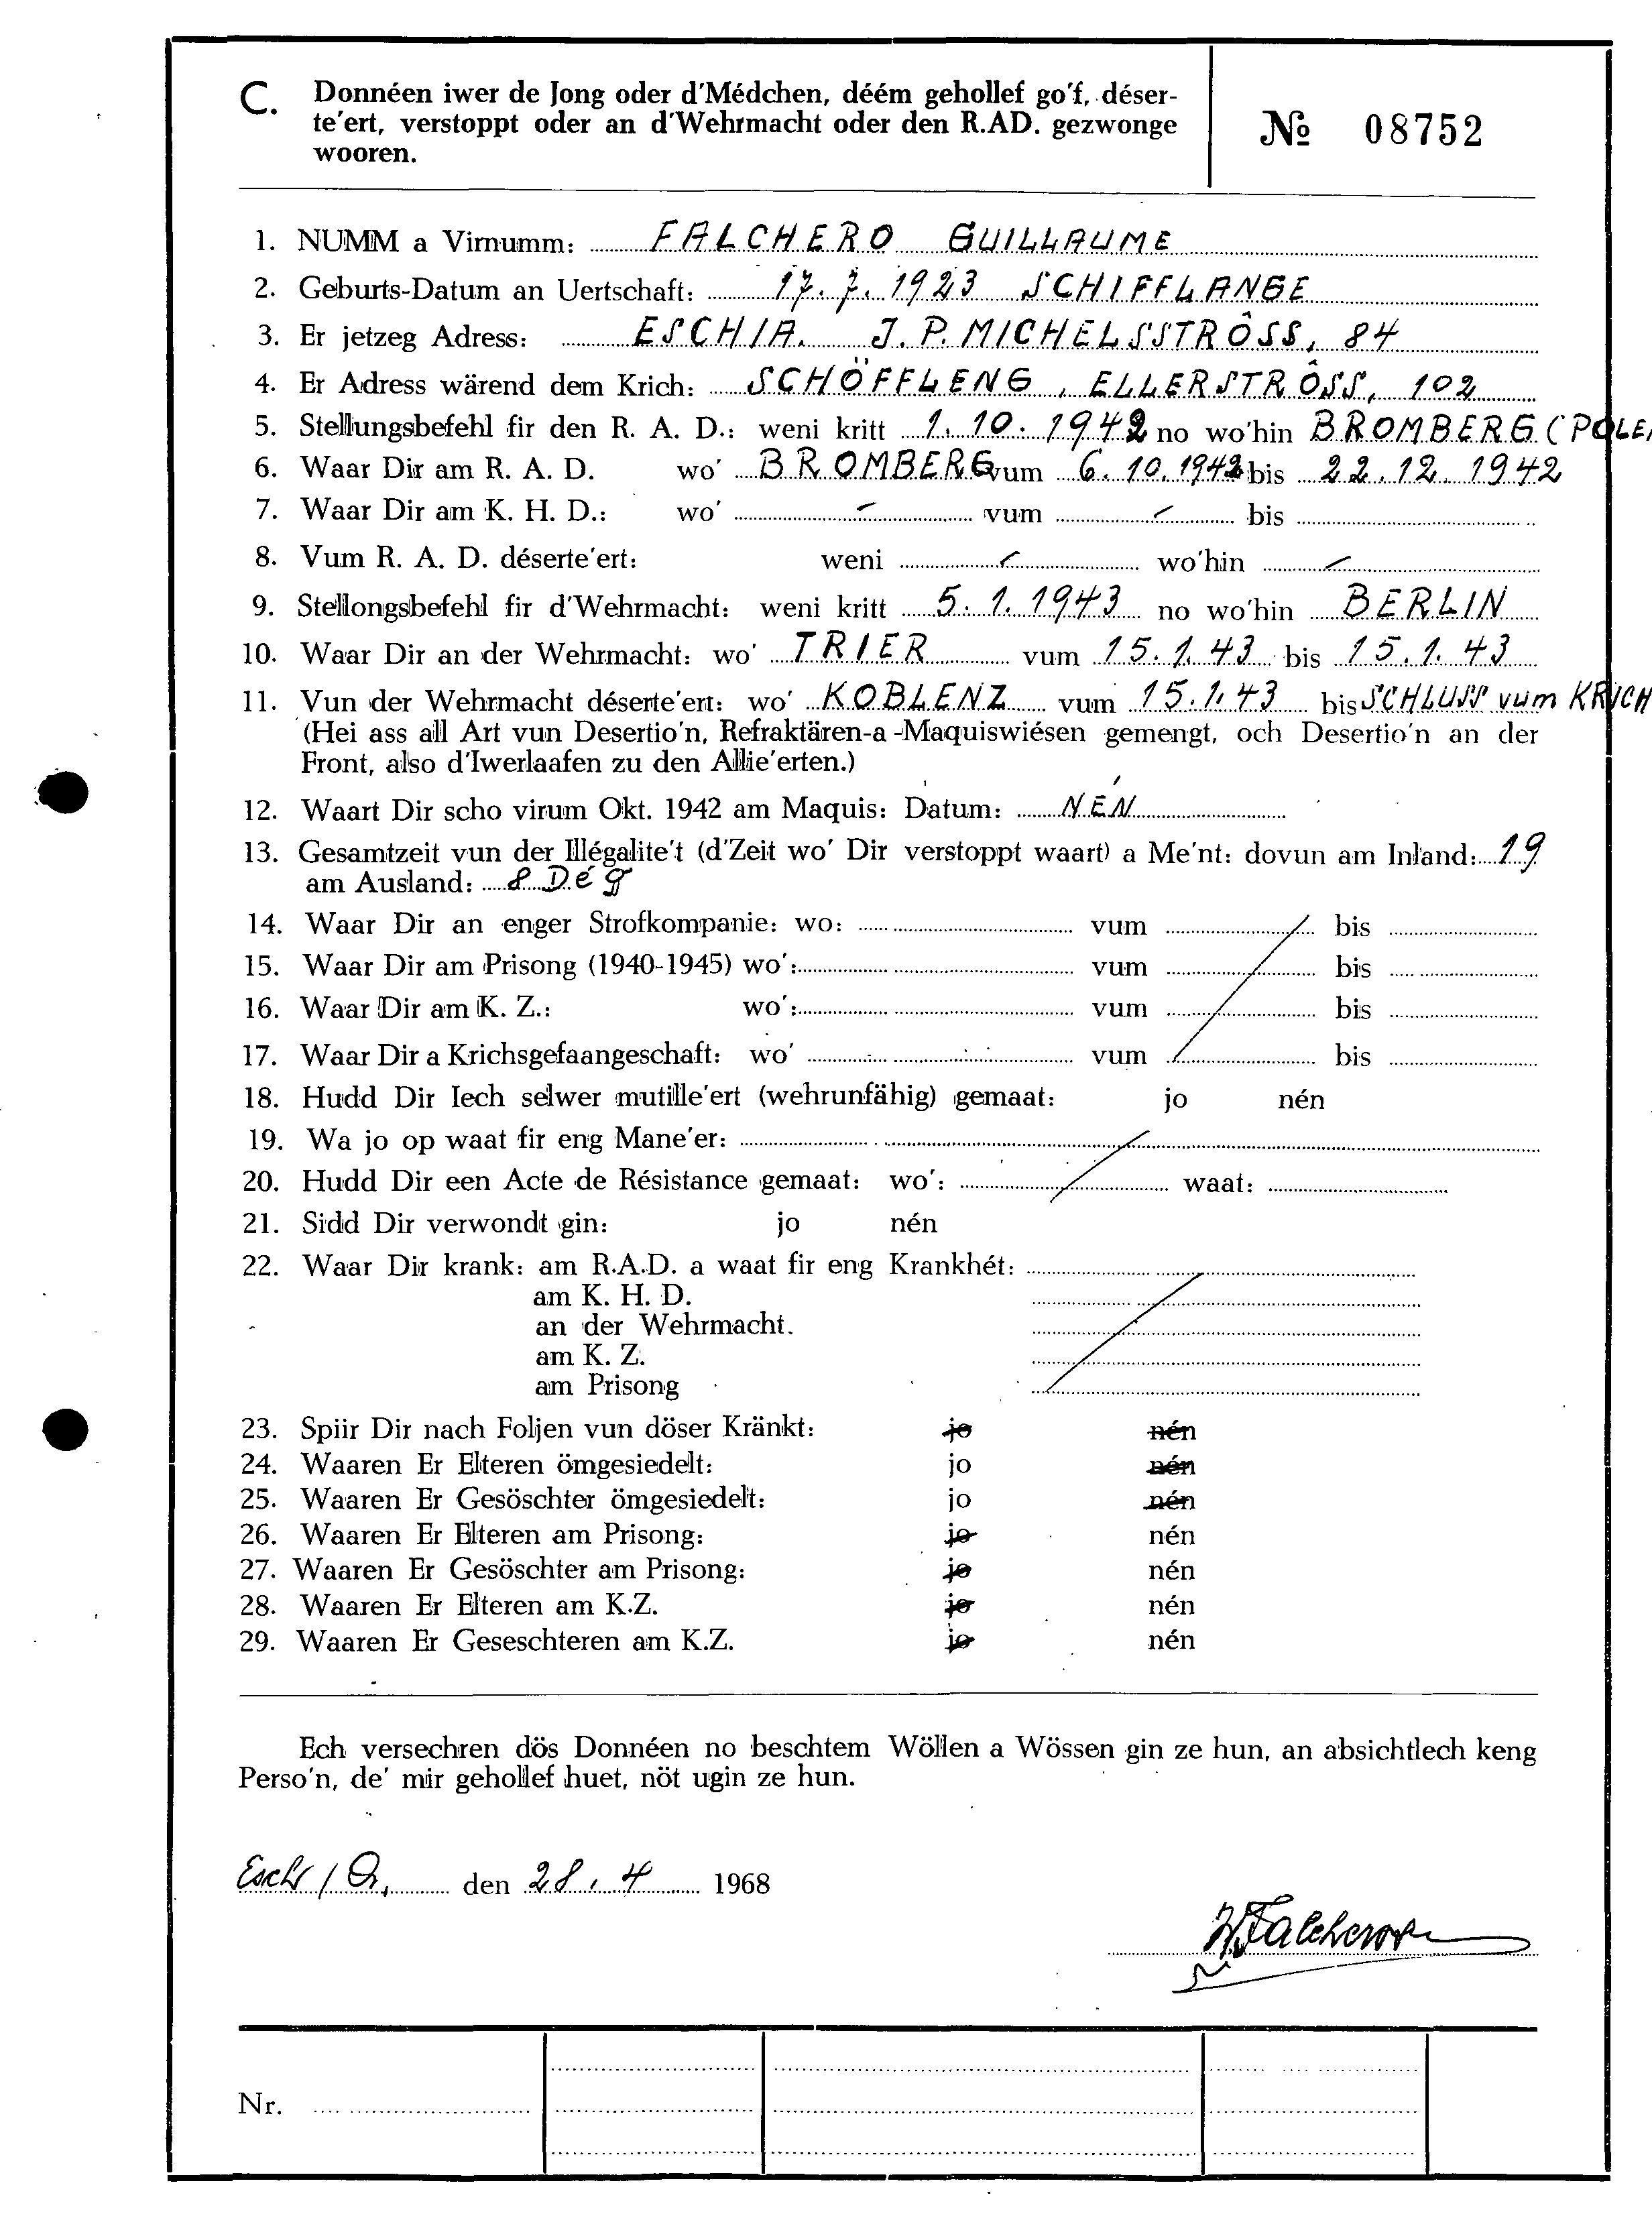 C. Donnéen iwer de Jong oder d'Médchen, déém gehollef go'f, déser-
te'ert, verstoppt oder an d'Wehrmacht oder den R.AD. gezwonge
wooren.
№ 08752
1. NUMM a Virnumm: FALCHERO GUILLAUME
2. Geburts-Datum an Uertschaft: 17. 7. 1923 SCHIFFLANGE
3. Er jetzeg Adress: ESCH/A. J. P. MICHELSSTRÔSS, 84
4. Er Adress wärend dem Krich: SCHÖFFLENG, ELLERSTRÔSS, 102
5. Stellungsbefehl fir den R. A. D.: weni kritt 1. 10. 1942 no wo'hin BROMBERG (POLEN
6. Waar Dir am R. A. D. wo' BROMBERG vum 6. 10. 1942 bis 22. 12. 1942
7. Waar Dir am K. H. D.: wo' – vum – bis
8. Vum R. A. D. déserte'ert: weni – wo'hin –
9. Stellongsbefehl fir d'Wehrmacht: weni kritt 5. 1. 1943 no wo'hin BERLIN
10. Waar Dir an der Wehrmacht: wo' TRIER vum 15. 1. 43 bis 15. 1. 43
11. Vun der Wehrmacht déserte'ert: wo' KOBLENZ vum 15. 1. 43 bis SCHLUSS vum KRICH
(Hei ass all Art vun Desertio'n, Refraktären-a-Maquiswiésen gemengt, och Desertio'n an der
Front, also d'Iwerlaafen zu den Allie'erten.)
12. Waart Dir scho virum Okt. 1942 am Maquis: Datum: NÉN
13. Gesamtzeit vun der Illégalite't (d'Zeit wo' Dir verstoppt waart) a Me'nt: dovun am Inland: 19
am Ausland: 8 Dég
14. Waar Dir an enger Strofkompanie: wo: vum bis
15. Waar Dir am Prisong (1940-1945) wo': vum bis
16. Waar Dir am K. Z.: wo': vum bis
17. Waar Dir a Krichsgefaangeschaft: wo' vum bis
18. Hudd Dir Iech selwer mutille'ert (wehrunfähig) gemaat: jo nén
19. Wa jo op waat fir eng Mane'er:
20. Hudd Dir een Acte de Résistance gemaat: wo': waat:
21. Sidd Dir verwondt gin: jo nén
22. Waar Dir krank: am R.A.D. a waat fir eng Krankhét:
am K. H. D.
an der Wehrmacht.
am K. Z.
am Prisong
23. Spiir Dir nach Foljen vun döser Kränkt: jo nén
24. Waaren Er Elteren ömgesiedelt: jo nén
25. Waaren Er Gesöschter ömgesiedelt: jo nén
26. Waaren Er Elteren am Prisong: jo nén
27. Waaren Er Gesöschter am Prisong: jo nén
28. Waaren Er Elteren am K.Z. jo nén
29. Waaren Er Geseschteren am K.Z. jo nén
Ech versechren dös Donnéen no beschtem Wöllen a Wössen gin ze hun, an absichtlech keng
Perso'n, de' mir gehollef huet, nöt ugin ze hun.
Esch / A, den 28. 4 1968
Falchero
Nr.